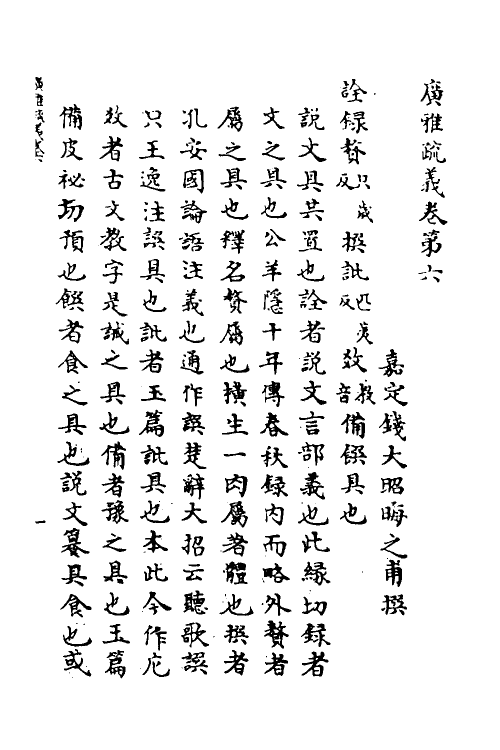 廣雅疏義卷第六
嘉定錢大昭晦之甫撰
詮録贅只歲反撰訿匹夷反效音教備饌具也
說文具共置也詮者說文言部義也此緣切録者
文之具也公羊隱十年傳春秋録內而略外贅者
屬之具也釋名贅屬也橫生一肉屬著體也撰者
孔安國論語注義也通作譔楚辭大招云聽歌譔
只王逸注譔具也訿者玉篇訿具也本此今作庀
效者古文教字是誠之具也備者豫之具也玉篇
備皮祕切預也饌者食之具也說文籑具食也或
廣雅疏義卷六
一